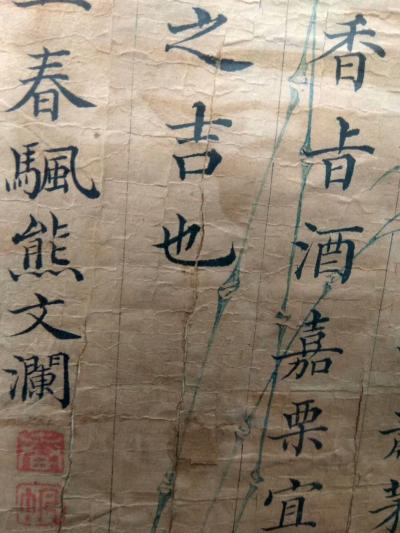 香旨酒嘉栗宜
之吉也
春颿熊文瀾